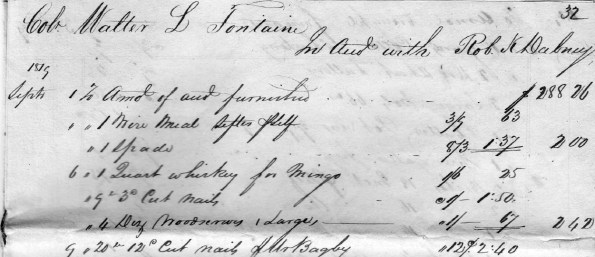 32
Colo Walter L Fontaine
In Acct with Rob. K Dabney
1819
Septr 1 To Amot of acct furnished $ 288 26
" " 1 Wire Meal Sifter 3/9 63
" 1 Spade 8/3 1:37 2 00
6 " 1 Quart whiskey for Mingo 1/6 25
" 9 lb 3d Cut nails 1/- 1:50
" 4 Doz Woodscrews Large 1/- 67 2 42
9 " 20 lb 12d Cut nails Bagby 12 2:40